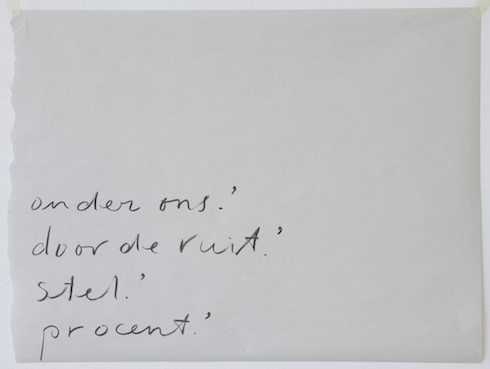 onder ons.’
door de ruit.’
stel.’
procent.’